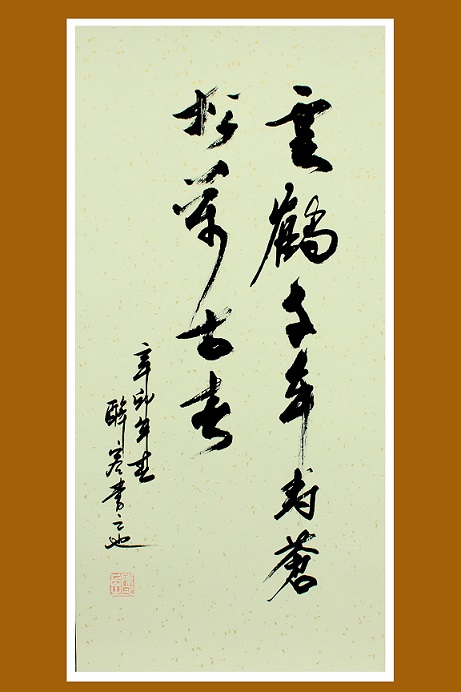 雲鶴千年壽蒼
松萬古春
辛卯年春
醉客書之也